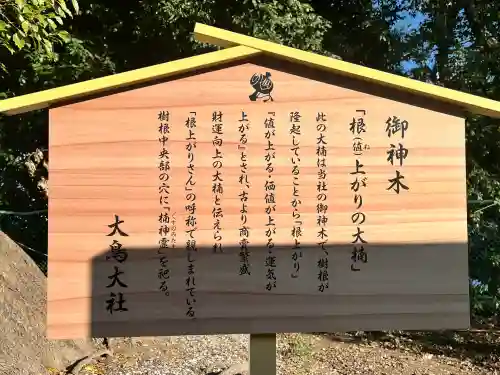 御神木
「根(値)上がりの大楠」
ね
此の大楠は当社の御神木で、樹根が
隆起していることから「根上がり」
『値が上がる・価値が上がる・運気が
上がる』とされ、古より商賣繁盛
財運向上の大楠と伝えられ
「根上がりさん」の呼称で親しまれている。
樹根中央部の穴に「楠神霊」を祀る。
くすのかみたま
大鳥大社